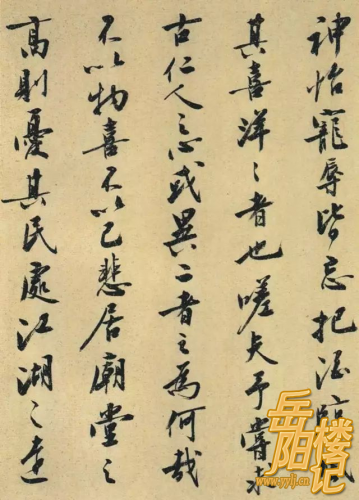 神怡寵辱皆忘把酒臨風
其喜洋々者也嗟夫予嘗求
古仁人之心或異二者之為何哉
不以物喜不以己悲居廟堂之
高則憂其民處江湖之遠
岳阳楼记
www.yylj.cn